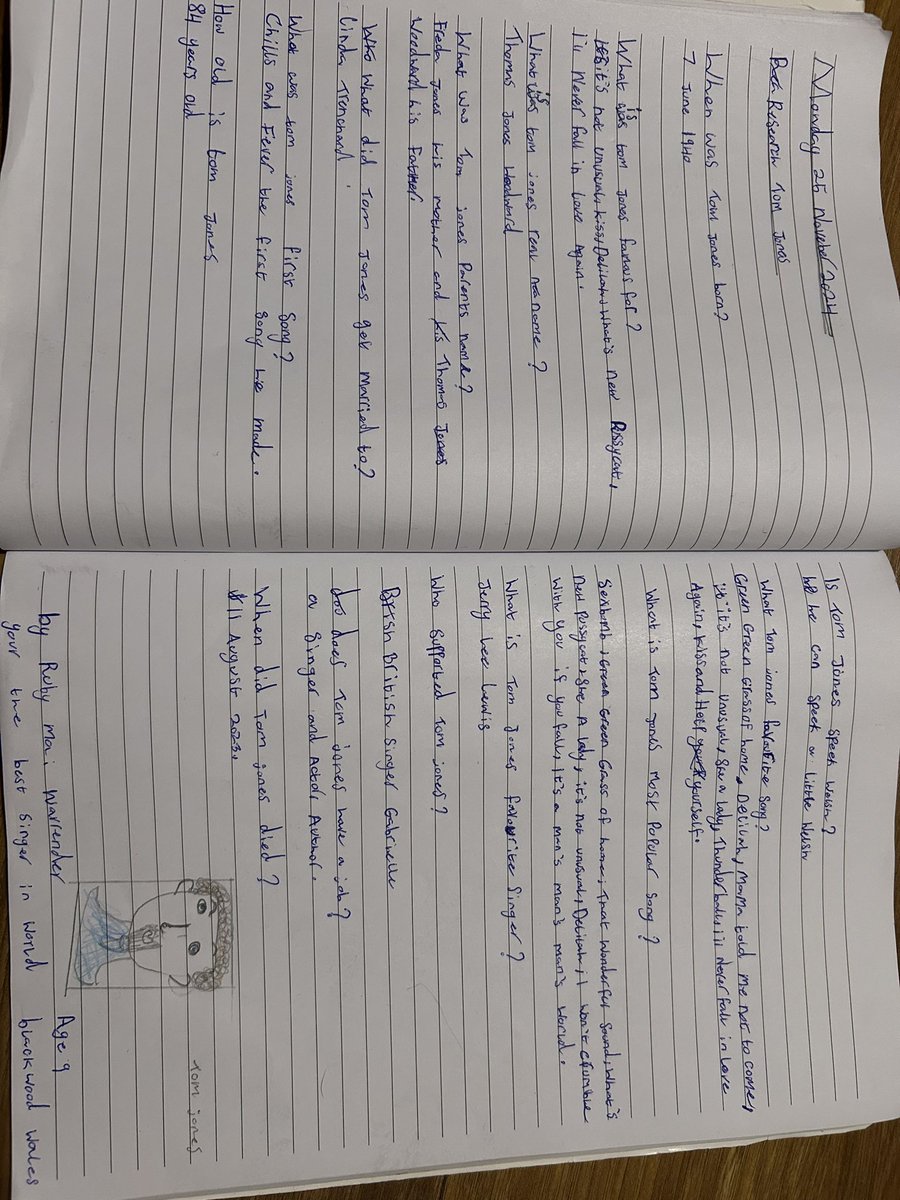 Monday 25 November 2024
Research Tom Jones
When was Tom Jones born?
7 June 1940
What is tom Jones famous for?
it's not unusual, kiss, Delilah, What's new Pussycat,
I'll Never fall in love Again.
What is tom jones real name?
Thomas Jones Woodward
What was Tom jones Parents name?
Freda Jones his mother and Thomas Jones
Woodward his Father.
Who What did Tom Jones get married to?
Linda Trenchard.
What was tom jones first Song?
Chills and Fever the first Song he made.
How old is tom Jones
84 years old
Is Tom Jones Speek Welsh?
he can Speek a little Welsh
What Tom jones favourite Song?
Green Green Grass of home, Delilah, Mama told me not to come,
it's not unusual, She a lady, Thunderball, i'll Never fall in Love
Again, kiss and Help yourself.
What is Tom Jones most Popular Song?
Sexbomb, Green Green Grass of home, That Wonderful Sound, What's
new Pussycat, She A lady, it's not unusual, Delilah, I won't crumble
With you if you fall, It's a man's man's man's World.
What is Tom Jones favourite Singer?
Jerry Lee Lewis
Who Supported Tom jones?
British Singer Gabrielle
does Tom jones have a job?
a Singer and Actor, Author.
When did Tom jones died?
11 August 2023.
Tom jones
by Ruby mai Warrender Age 9
your the best Singer in World blackwood wales